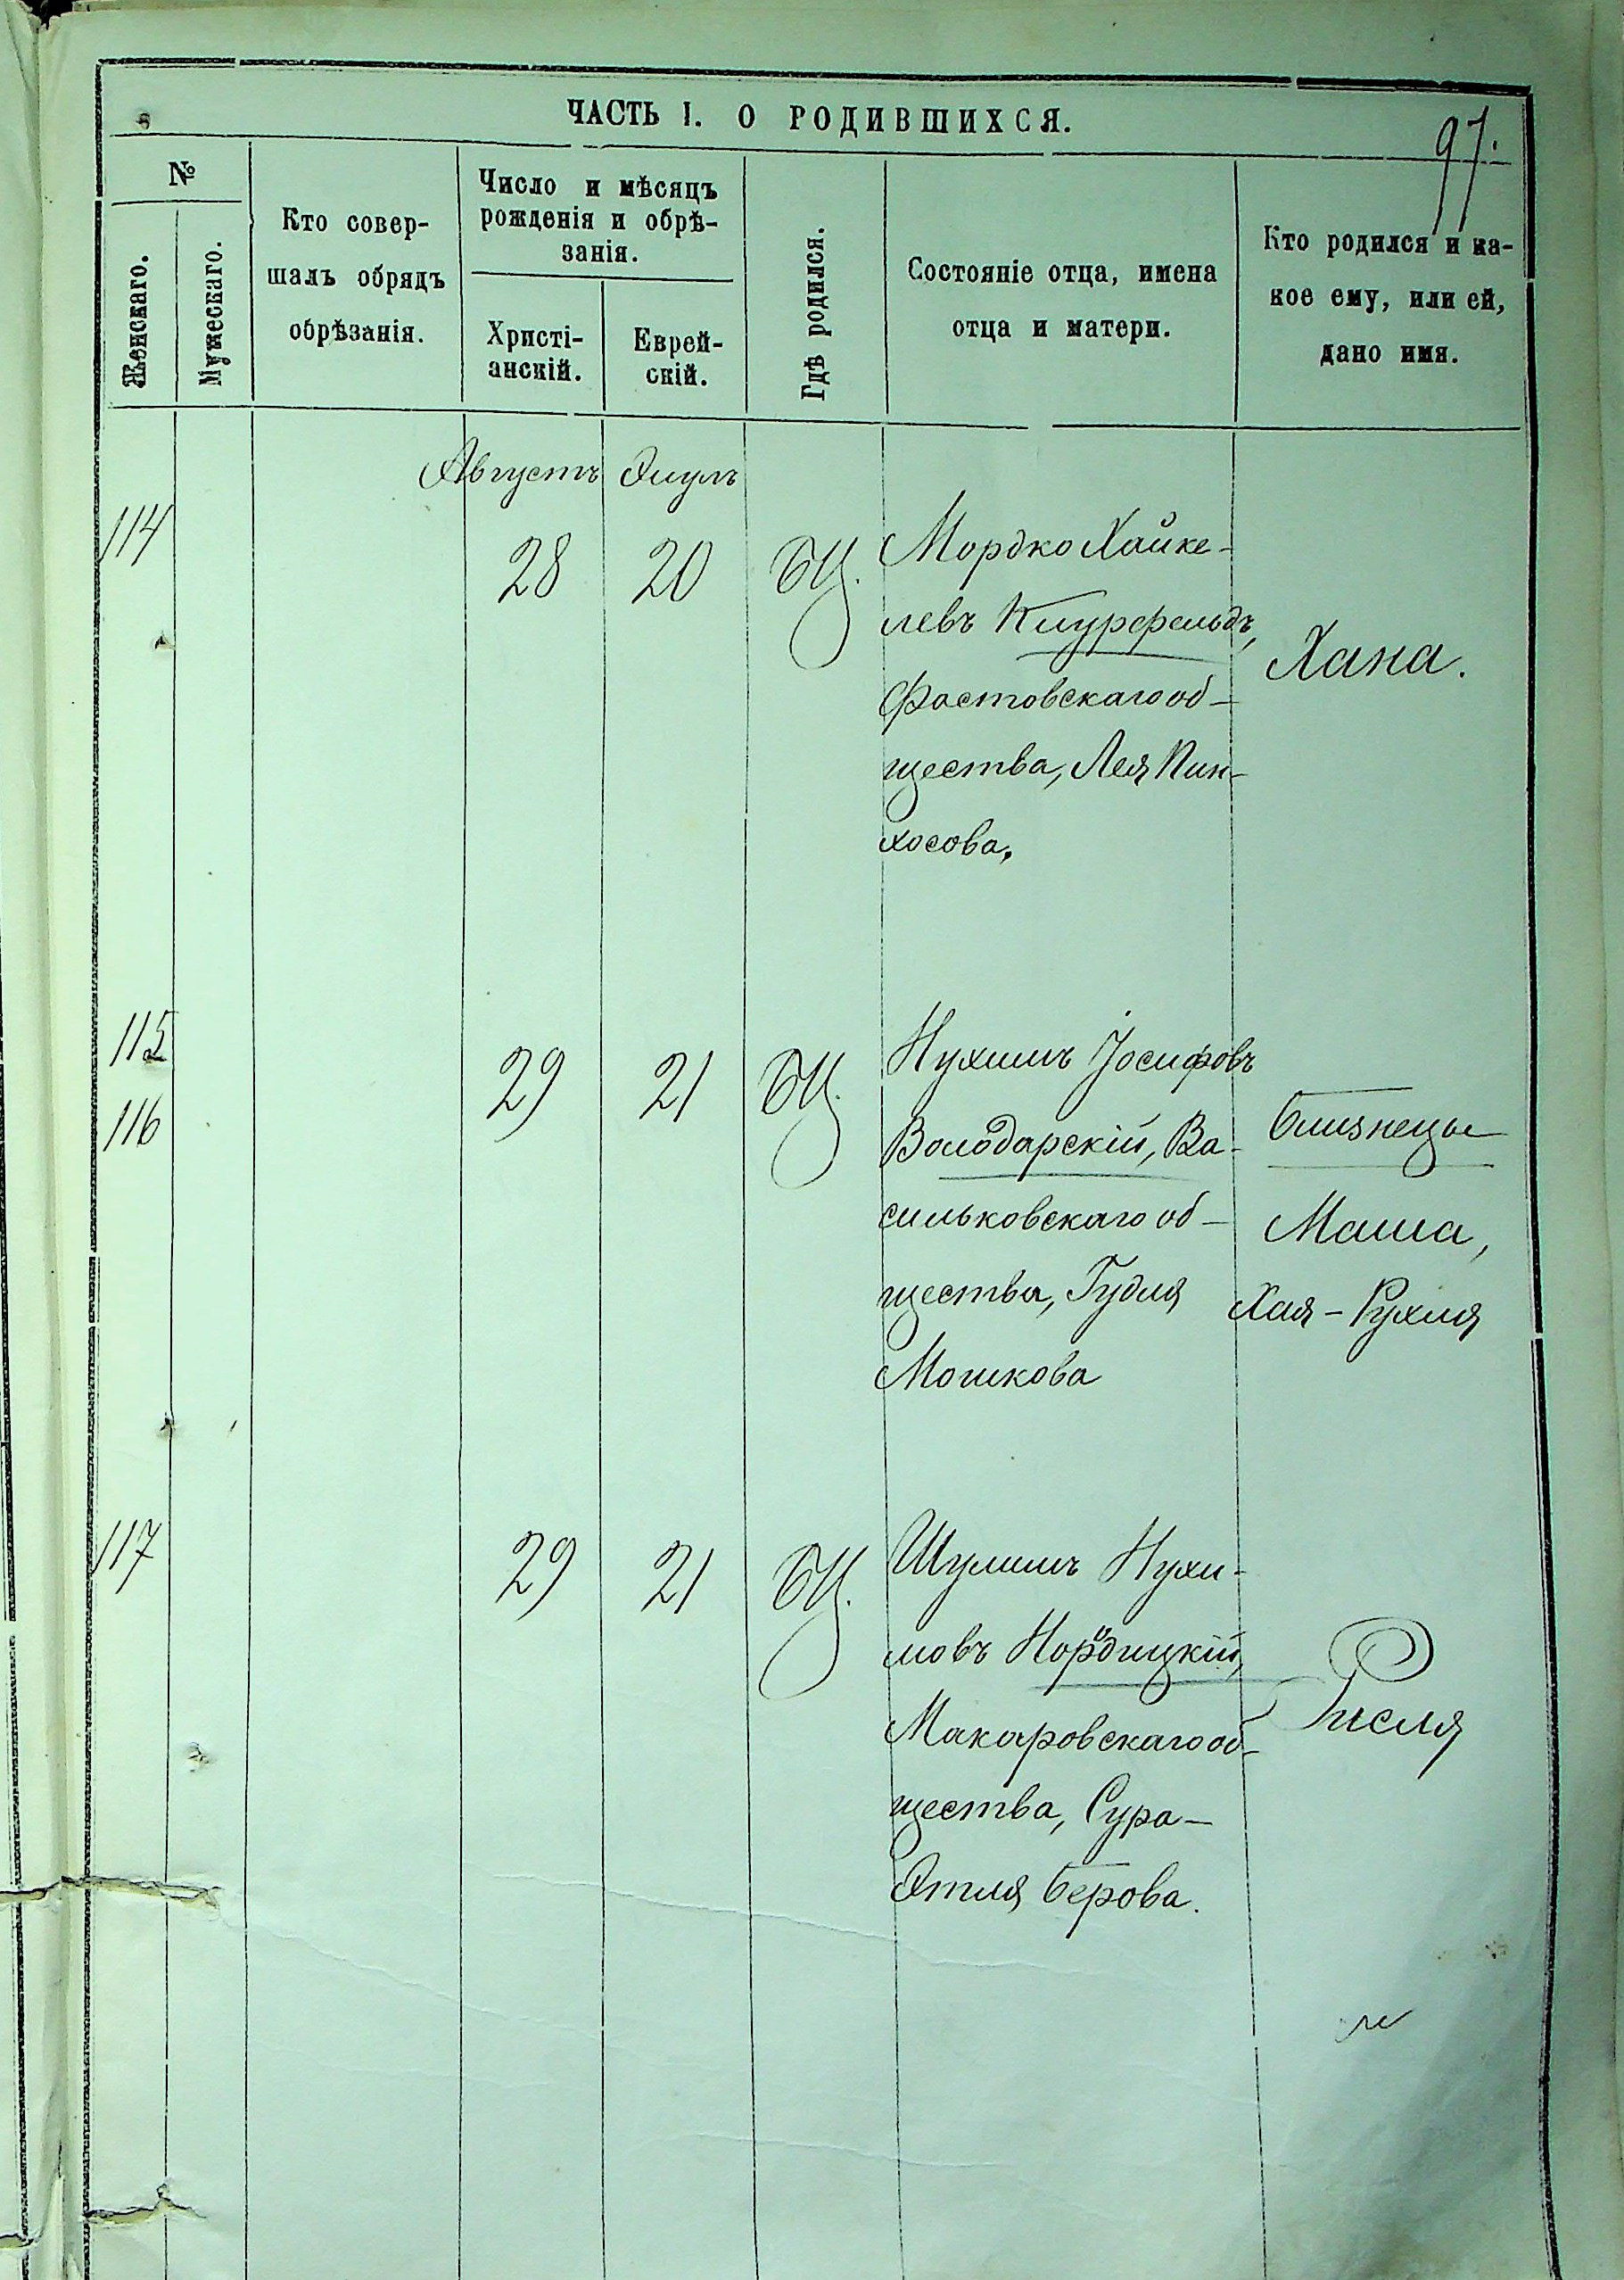 ЧАСТЬ I. О РОДИВШИХСЯ.
97.
№
Женскаго.
Мужескаго.
Кто совер-
шалъ обрядъ
обрѣзанія.
Число и мѣсяцъ
рожденія и обрѣ-
занія.
Христі-
анскій.
Еврей-
скій.
Гдѣ родился.
Состояніе отца, имена
отца и матери.
Кто родился и ка-
кое ему, или ей,
дано имя.
Августъ Элулъ
114 28 20 БЦ.
Мордко Хайке-
левъ
Фастовскаго об-
щества, Лея Пин-
хосова.
Хана.
115
116
29 21 БЦ.
Нухимъ Іосифовъ
Володарскій, Ва-
сильковскаго об-
щества, Гудля
Мошкова
Близнецы
Маша,
Хая-Рухля
117 29 21 БЦ.
Шулимъ Нухи-
мовъ
Макаровскаго об-
щества, Сура-
Этля Берова.
Рисля